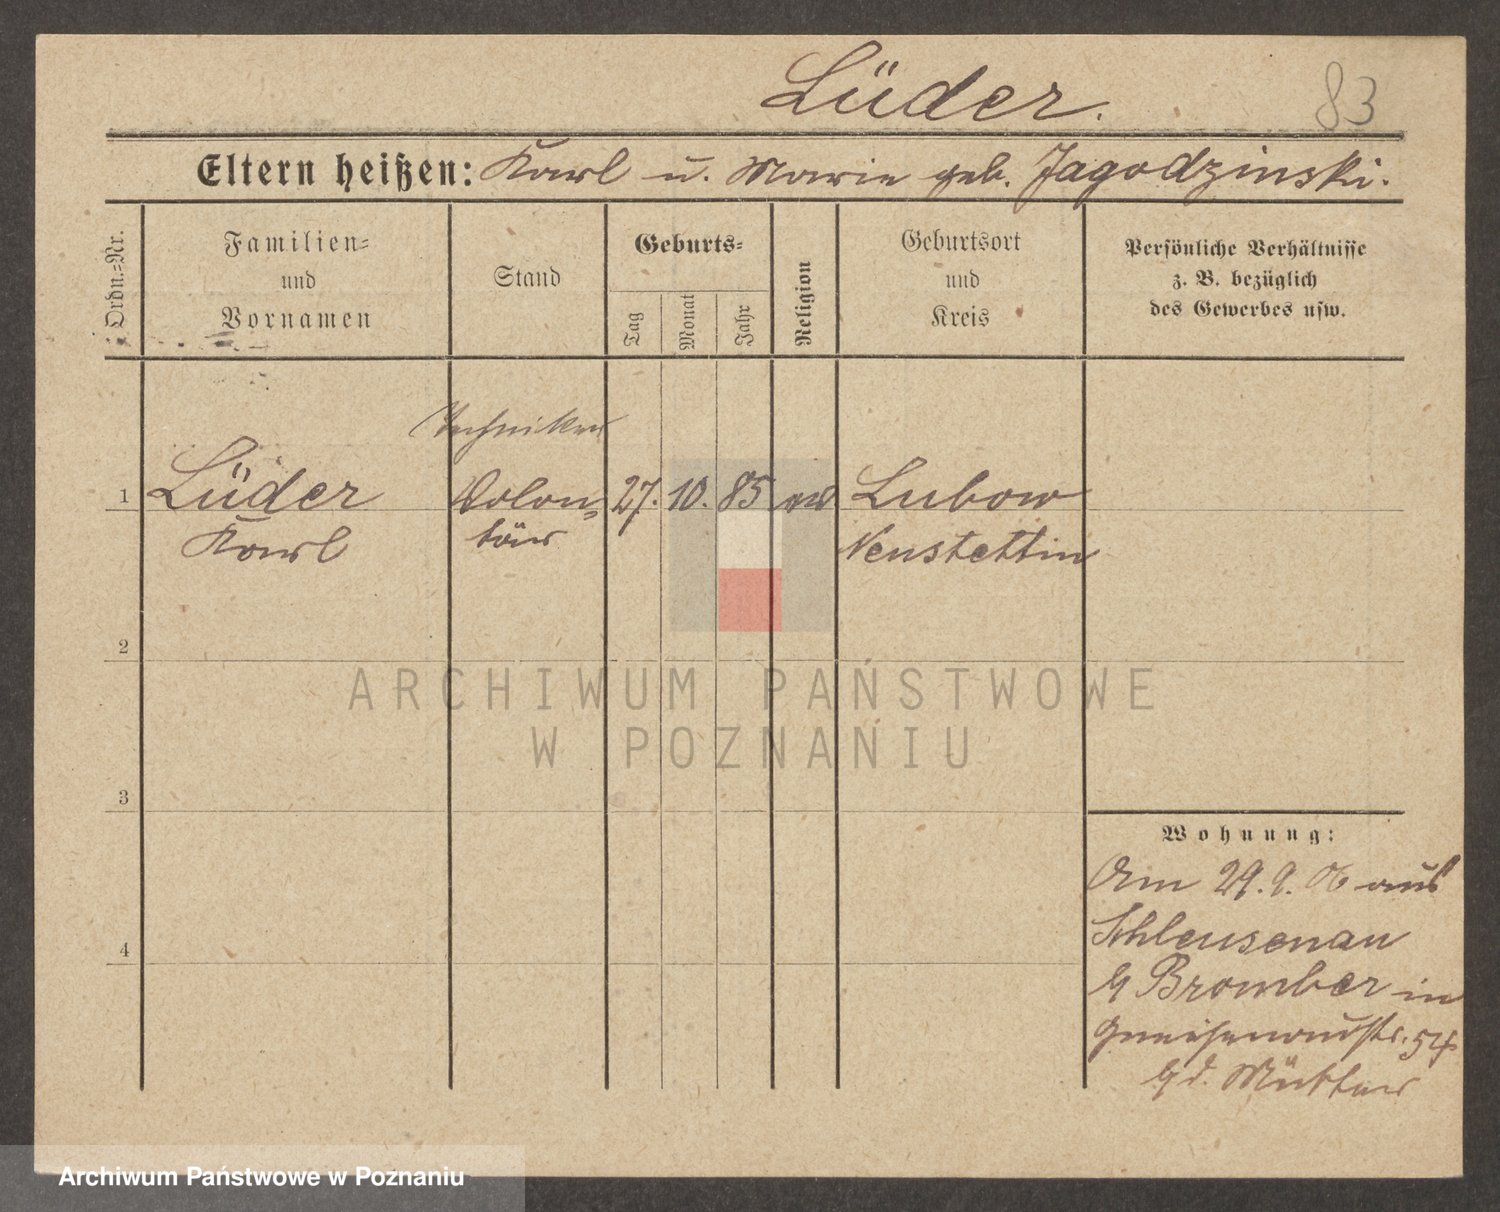 Lüder. 83
Eltern heißen: Karl u. Marie geb. Jagodzinski.
Ordn.-Nr.
Familien-
und
Vornamen
Stand
Geburts-
Tag
Monat
Jahr
Religion
Geburtsort
und
Kreis
Persönliche Verhältnisse
z. B. bezüglich
des Gewerbes usw.
Techniker
1 Lüder Volon- 27. 10. 85 ev Lubow
Karl tär Neustettin
2
ARCHIWUM PAŃSTWOWE
W POZNANIU
3
Wohnung:
Am 29. 9. 06 aus
Schleusenau
Bromber in
4
Gneisenaustr. 54
Archiwum Państwowe w Poznaniu